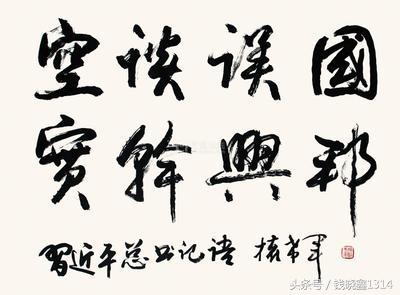 空谈误國
實幹興邦
習近平总书记语 權希军
头条号 / 钱晓鑫1314